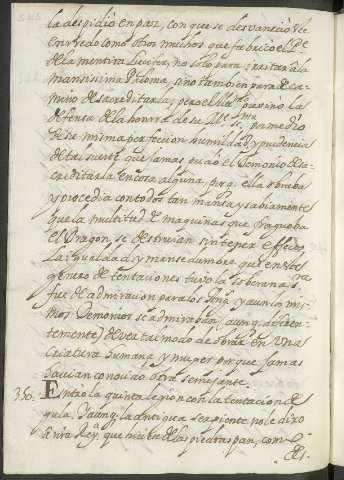 la despidio en paz, con que se desvanecio este
enrredo como otros muchos que fabrico el P.e
de la mentira Lucifer, no solo para irritar a la
mansissima Paloma, sino tambien para de ca-
mino desacreditarla; pero el
defensa de la honrra de su M.e SS.ma por medio
de su misma perfeccion, humildad, y prudencia
de tal suerte que jamas pudo el Demonio desa-
creditarla en cosa alguna, porq. ella obraba
y procedia con todos tan mansa y sabiamente
que la multitud de maquinas que fraguaba
el Dragon, se destruian sin tener effecto.
La igualdad, y mansedumbre que en este
genero de tentaciones tuvo la soberana S.ra
fue de admiracion para los Ang.s y aun los mis-
mos Demonios se admiraban (aunq. diferen-
temente) de ver tal modo de obrar en una
Criatura humana, y muger porque jamas
havian conocido otra semejante.
356. Entro la quinta legion con la tentacion de
gula, y aunq. la antigua serpiente no le dixo
a nra Reyna que hiciese de las piedras pan, como